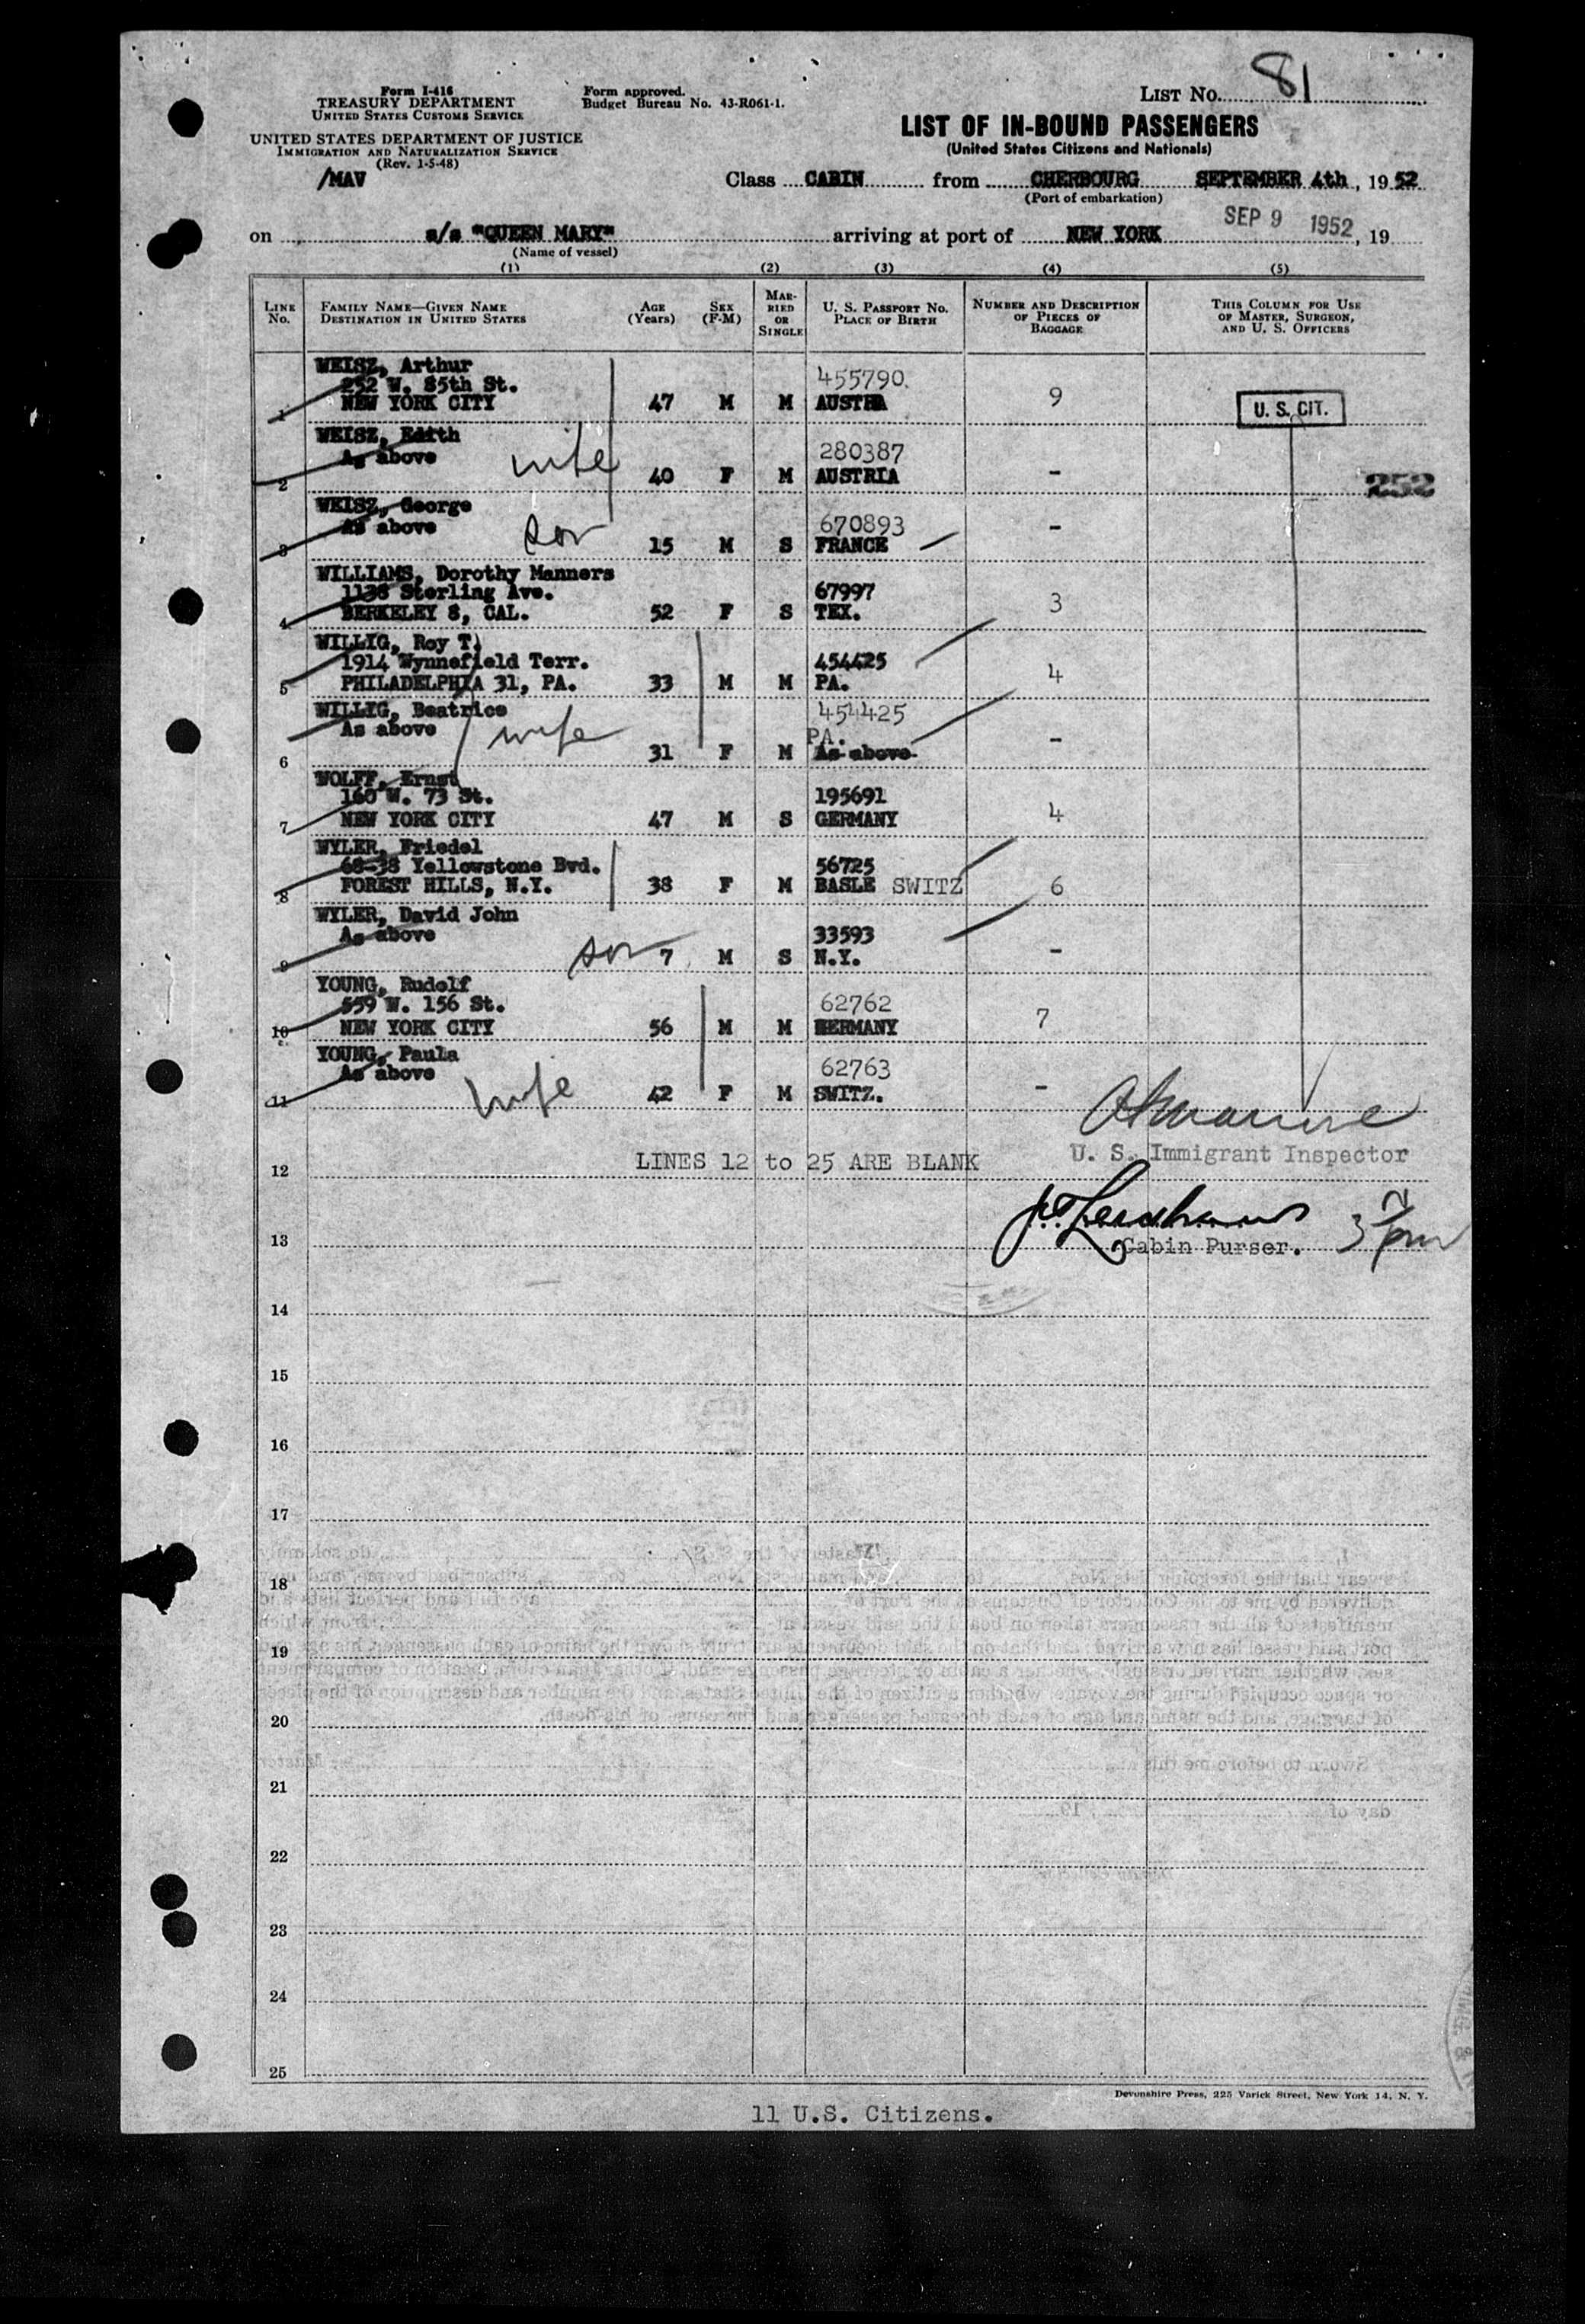 Form I-416
TREASURY DEPARTMENT
UNITED STATES CUSTOMS SERVICE
UNITED STATES DEPARTMENT OF JUSTICE
IMMIGRATION AND NATURALIZATION SERVICE
(Rev. 1-5-48)
/MAV
Form approved.
Budget Bureau No. 43-R061-1.
LIST No. 81
LIST OF IN-BOUND PASSENGERS
(United States Citizens and Nationals)
Class CABIN from CHERBOURG SEPTEMBER 4th, 1952
(Port of embarkation)
on s/s "QUEEN MARY" arriving at port of NEW YORK SEP 9 1952, 19
(Name of vessel)
(1) (2) (3) (4) (5)
LINE No. FAMILY NAME—GIVEN NAME DESTINATION IN UNITED STATES AGE (Years) SEX (F-M) MARRIED OR SINGLE U. S. PASSPORT NO. PLACE OF BIRTH NUMBER AND DESCRIPTION OF PIECES OF BAGGAGE THIS COLUMN FOR USE OF MASTER, SURGEON, AND U. S. OFFICERS
WEISZ, Arthur 455790
252 W. 85th St. 9
1 NEW YORK CITY 47 M M U. S. CIT.
WEISZ, Edith 280387
As above wife
2 40 F M AUSTRIA - 252
WEISZ, George 670893
As above son
3 15 M S FRANCE -
WILLIAMS, Dorothy Manners
1138 Sterling Ave. 67997 3
4 BERKELEY 8, CAL. 52 F S TEX.
WILLIG, Roy T.
1914 Wynnefield Terr. 454425 4
5 PHILADELPHIA 31, PA. 33 M M PA.
WILLIG, Beatrice 454425
As above wife PA.
6 31 F M As above -
WOLFF, Ernst
160 W. 73 St. 195691 4
7 NEW YORK CITY 47 M S GERMANY
WYLER, Friedel
68-38 Yellowstone Bvd. 56725
8 FOREST HILLS, N.Y. 38 F M BASLE SWITZ 6
WYLER, David John
As above 33593
9 son 7 M S N.Y. -
YOUNG, Rudolf
559 W. 156 St. 62762 7
10 NEW YORK CITY 56 M M GERMANY
YOUNG, Paula 62763
As above wife -
11 42 F M SWITZ.
U. S. Immigrant Inspector
12 LINES 12 to 25 ARE BLANK
13 Cabin Purser. 3 pm
14
15
16
17
18
19
20
21
22
23
24
25
Devonshire Press, 225 Varick Street, New York 14, N. Y.
11 U.S. Citizens.